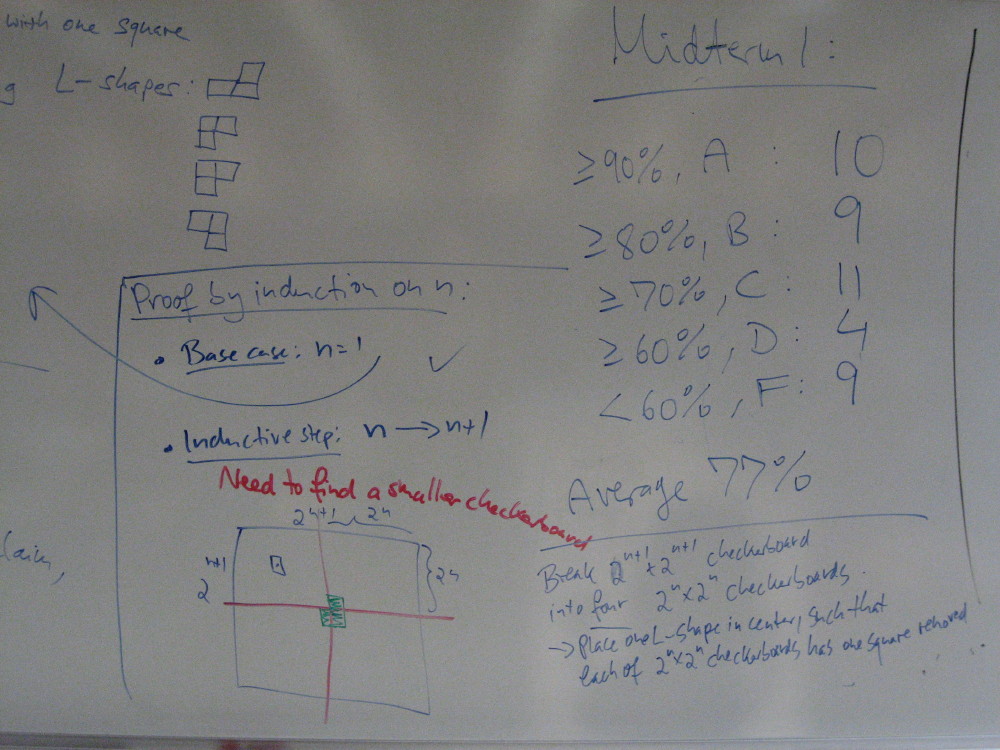 with one square
g L-shapes:
Proof by induction on n:
• Base case: n=1 ✓
• Inductive step: n → n+1
Need to find a smaller checkerboard
2^{n+1} 2^n
2^{n+1}
2^n
Midterm 1:
≥90%, A : 10
≥80%, B : 9
≥70%, C : 11
≥60%, D : 4
<60%, F : 9
Average 77%
Break 2^{n+1} x 2^{n+1} checkerboard
into four 2^n x 2^n checkerboards.
→ Place one L-shape in center, such that
each of 2^n x 2^n checkerboards has one square removed